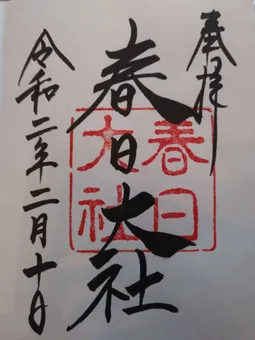 奉拝
春日大社
春日大社
令和二年二月十日